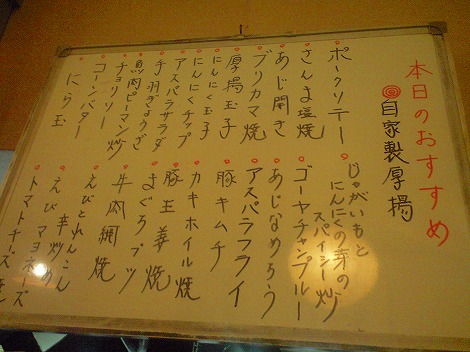 本日のおすすめ
自家製厚揚
ポークソテー
さんま塩焼
あじ開き
ブリカマ焼
厚揚玉子
にんにく玉子
にんにくチップ
アスパラサラダ
手羽ぎょうざ
魚肉ピーマン炒
チョリソー
コーンバター
にら玉
じゃがいもと
にんにくの芽の
スパイシー炒
ゴーヤチャンプルー
あじなめろう
アスパラフライ
豚キムチ
カキホイル焼
豚玉姜焼
まぐろブツ
牛肉網焼
えびとれんこん
辛炒め
えびマヨネーズ
トマトチーズ焼